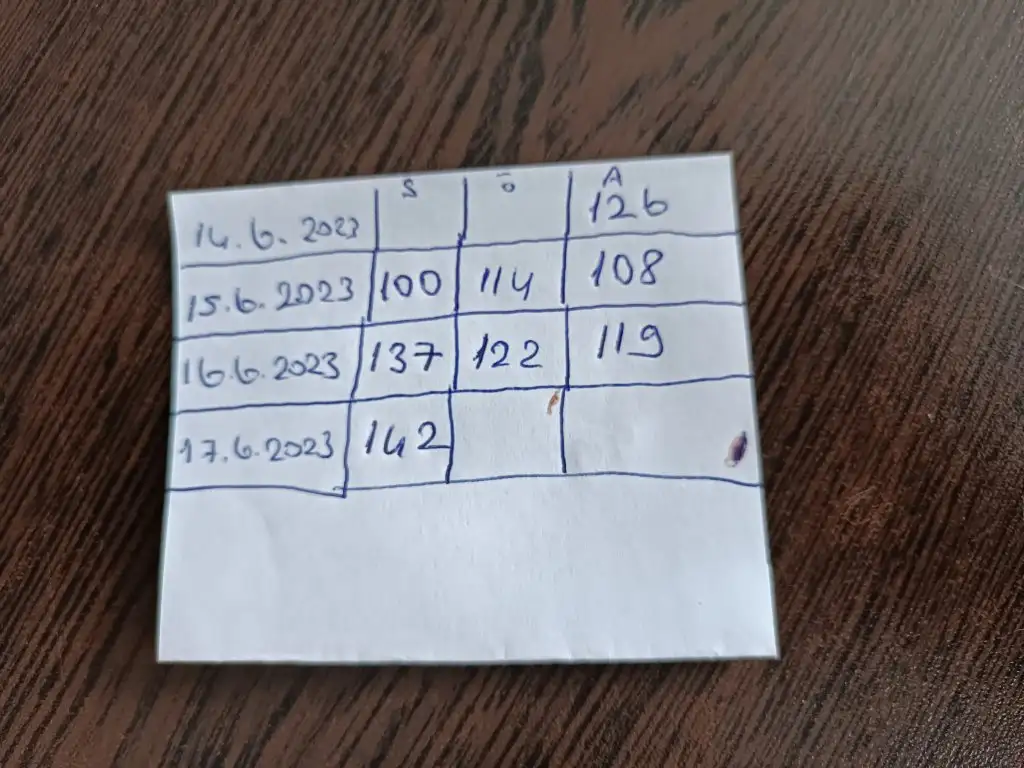 S Ö A
14.6.2023 126
15.6.2023 100 114 108
16.6.2023 137 122 119
17.6.2023 142